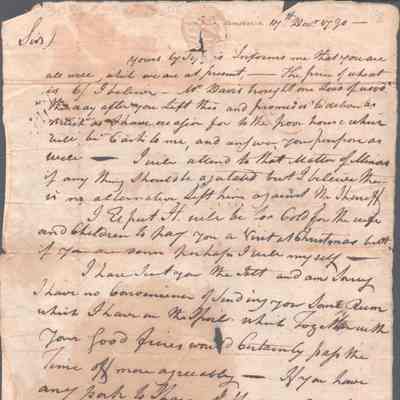 17th Decr. 1790 —
Sir
yours by is Informs me that you are
all well, which we are at present, — The price of wheat
is 6/ I believe — Mr Davis brought one Load of wood
the day after you Left this and promised to deliver as
much as I have occasion for to the poor house which
will be Cash to me, and answer you purpose as
well — I will attend to that Matter of
if any thing should be agitated but I believe there
is no alternative Left him against the Sheriff
I Expect It will be too Cold for the wife
and Children to pay you a Visit at Christmas but
if you are some perhaps I will my self —
I have sent you the Salt and am Sorry
I have no Convenience of Sending you Some Rum
which I have on the Spot which Together with
your Good fires would Certainly pass the
Time off more agreeably — If you have
any pork to